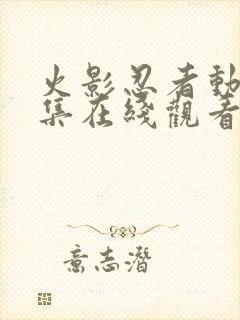 火影忍者動
集在綫觀看
意志潛